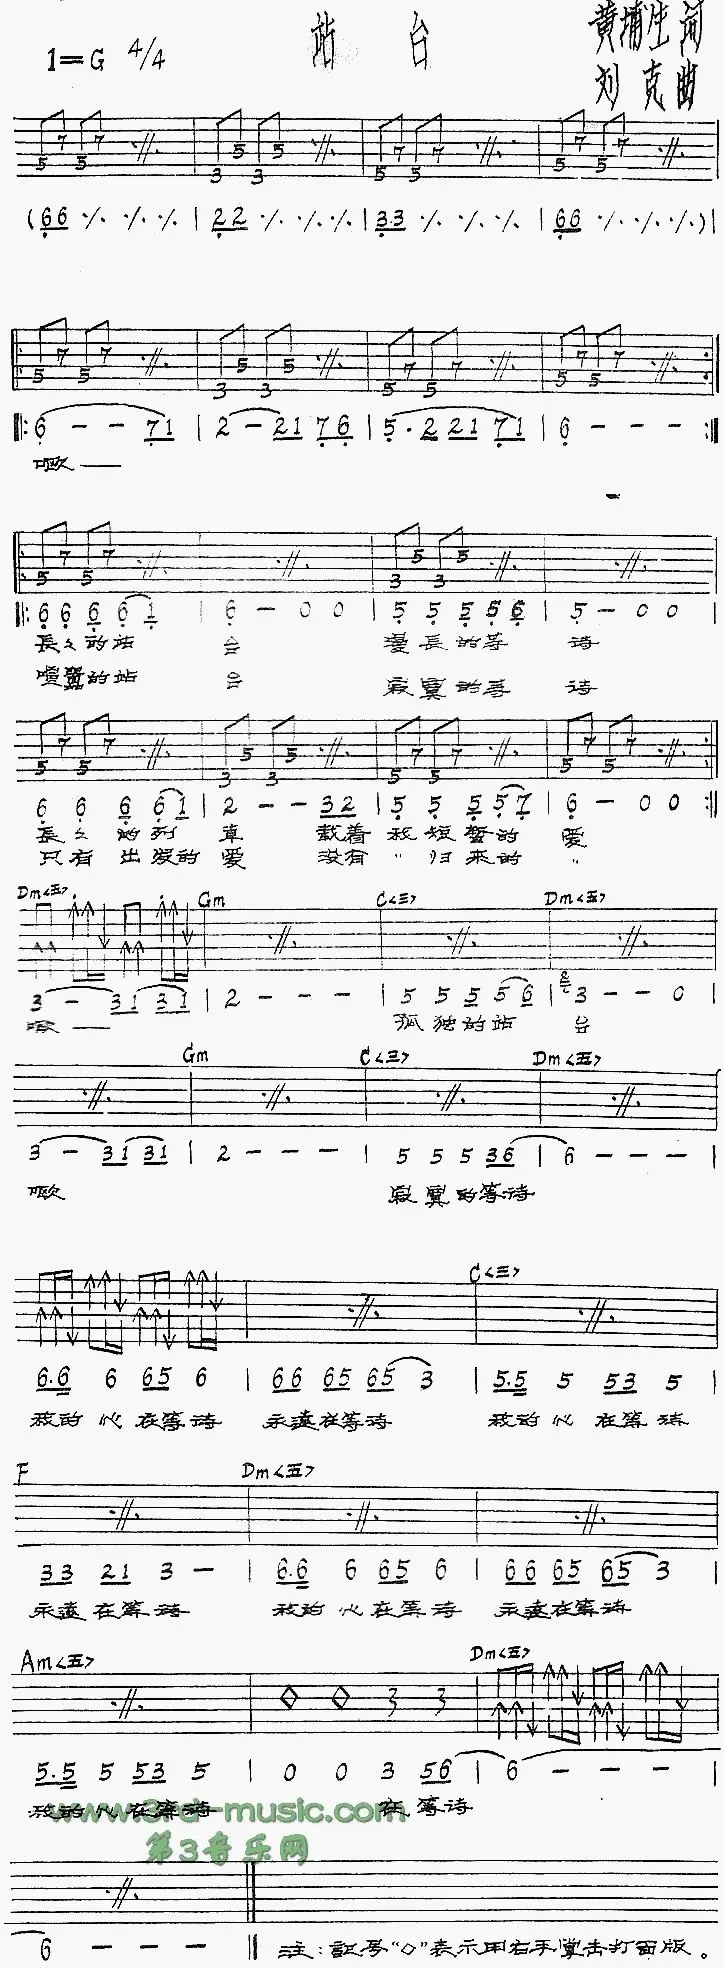 站 台
黄埔生 词
1=G 4/4
刘 克 曲
(66 ·/. ·/. ·/. | 22 ·/. ·/. ·/. | 3·3 ·/. ·/. ·/. | 66 ·/. ·/. ·/.)|
‖: 6 - - 71 | 2 - 21 76 | 5· 2 21 71 | 6 - - - :‖
呕——
‖: 6 6 6 6 1 | 6 - 0 0 | 5 5 5 5 6 | 5 - 0 0 |
長久的站 台 漫長的等 待
喧囂的站 台 寂寞的等 待
6 6 6 6 1 | 2 - - 32 | 5 5 5 5 7 | 6 - 0 0 :‖
長久 的列 車 載着 我短暫的 愛
只有 出发的 爱 没有 〃 归来的 〃
Dm<五> Gm C<三> Dm<五>
3 - 31 31 | 2 - - - | 5 5 5 5 6 | 3 - - 0 |
呕—— 孤独的站 台
Gm C<三> Dm<五>
3 - 31 31 | 2 - - - | 5 5 5 36 | 6 - - - |
呕 寂寞的等待
C<三>
6·6 6 65 6 | 66 65 65 3 | 5·5 5 53 5 |
我的心在等待 永遠在等待 我的心在等待
F Dm<五>
33 21 3 - | 6·6 6 65 6 | 66 65 65 3 |
永遠在等待 我的心在等待 永遠在等待
Am<五> Dm<五>
5·5 5 53 5 | 0 0 3 56 | 6 - - - |
我的心在等待 在 等待
www.3rd-music.com
第3音乐网
6 - - - ‖ 注：記号“◇”表示用右手掌击打面版。